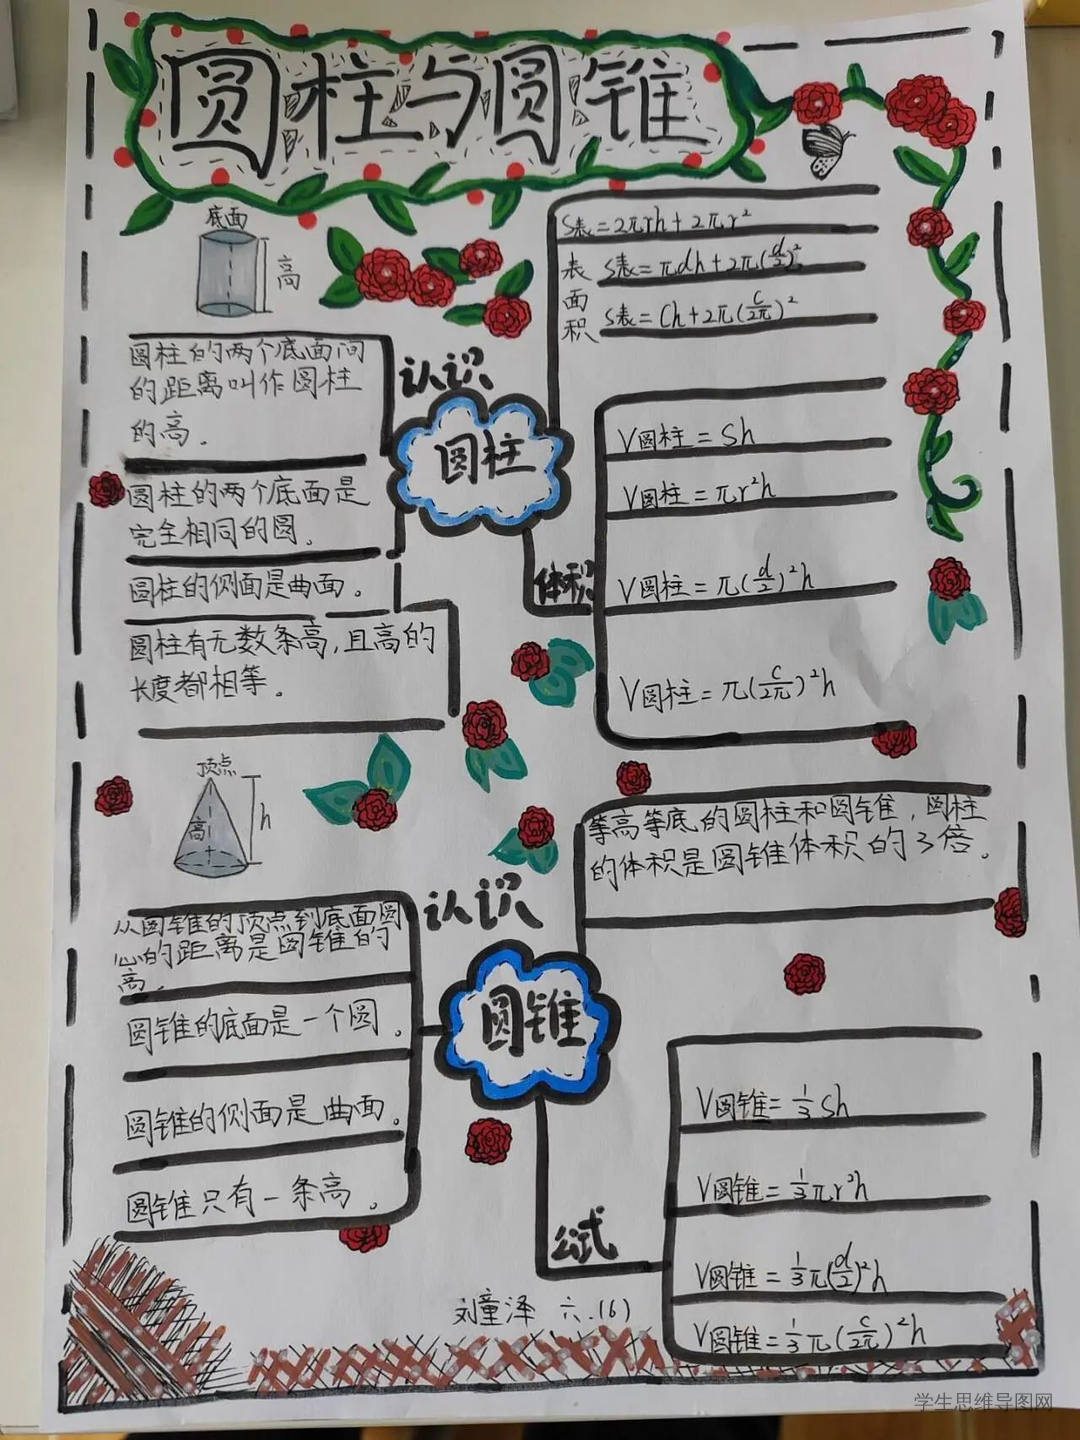 圆柱与圆锥
底面
高
S表=2πrh+2πr²
表面积
S表=πdh+2π(d/2)²
S表=Ch+2π(C/2π)²
认识
圆柱的两个底面间
的距离叫作圆柱
的高.
圆柱
圆柱的两个底面是
完全相同的圆.
圆柱的侧面是曲面.
圆柱有无数条高,且高的
长度都相等.
体积
V圆柱=Sh
V圆柱=πr²h
V圆柱=π(d/2)²h
V圆柱=π(C/2π)²h
顶点
高
h
等高等底的圆柱和圆锥,圆柱
的体积是圆锥体积的3倍.
认识
从圆锥的顶点到底面圆
心的距离是圆锥的
高.
圆锥
圆锥的底面是一个圆.
圆锥的侧面是曲面.
圆锥只有一条高.
公式
V圆锥=1/3Sh
V圆锥=1/3πr²h
V圆锥=1/3π(d/2)²h
V圆锥=1/3π(C/2π)²h
刘童泽 六.(6)
学生思维导图网